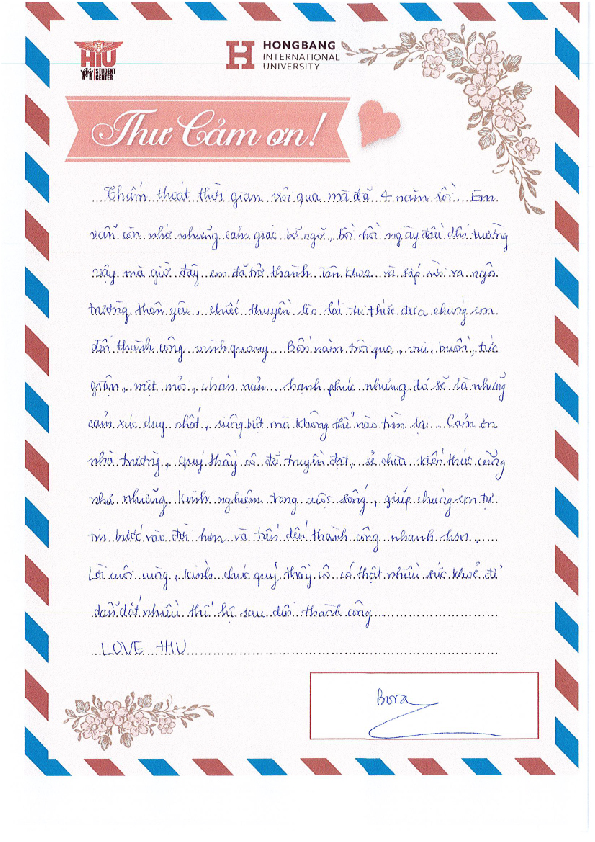 HIU
HONGBANG
INTERNATIONAL
UNIVERSITY
Thư Cảm ơn!
Thấm thoát thời gian trôi qua mà đã 4 năm rồi. Em
vẫn còn nhớ những cảm giác bỡ ngỡ, bồi hồi ngày đầu đến trường
vậy mà giờ đây em đã trở thành và sắp rời xa ngôi
trường thân yêu, chiếc thuyền to lái tri thức đưa chúng em
đến thành công, vinh quang. Bốn năm trôi qua, vui, buồn, tức
giận, mệt mỏi, chán nản, hạnh phúc nhưng đó sẽ là những
cảm xúc duy nhất, riêng biệt mà không thể nào tìm lại. Cảm ơn
nhà trường, quý thầy cô đã truyền đạt, kiến thức cũng
như những kinh nghiệm trong cuộc sống, giúp chúng em tự
tin bước vào đời hơn và tiến đến thành công nhanh hơn,...
Lời cuối cùng, kính chúc quý thầy cô có thật nhiều sức khoẻ để
dẫn dắt nhiều thế hệ sau đến thành công
LOVE HIU
Bora